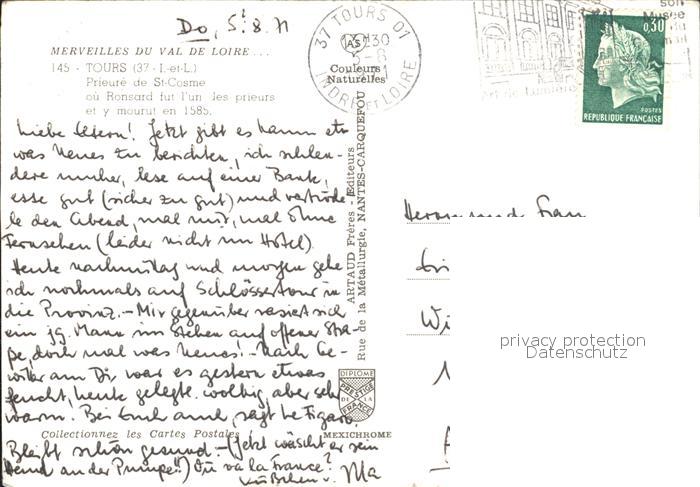 Do, 5. 8. 71
MERVEILLES DU VAL DE LOIRE...
145 - TOURS (37 - I.-et-L.)
Prieuré de St-Cosme
où Ronsard fut l'un des prieurs
et y mourut en 1585.
AS
Couleurs
Naturelles
37 TOURS 01
INDRE ET LOIRE
son
Musée
du
Art de Lumière
0,30
POSTES
REPUBLIQUE FRANÇAISE
Liebe Eltern! Jetzt gibt es kaum etw
was Neues zu berichten, ich schlen-
dere umher, lese auf einer Bank,
esse gut (sicher zu gut) und vertröd-
le den Abend, mal mit, mal ohne
Fernsehen (leider nicht im Hotel)
Heute nachmittag und morgen gehe
ich nochmals auf Schlössertour in
die Provinz. - Mir gegenüber rasiert sich
ein jg. Mann im Stehen auf offener Stra-
ße, doch mal was Neues! - Nach Ge-
witter am Di. war es gestern etwas
feucht, heute wolkig, aber sehr
warm. Bei Euch auch, sagt le Figaro.
Bleibt schön gesund. - (Jetzt wäscht er sein
Hemd an der Pumpe!!) Où va la France?
Ma
ARTAUD Frères - Editeurs
Rue de la Métallurgie, NANTES-CARQUEFOU
DIPLOME
PRESTIGE
DE LA
FRANCE
Collectionnez les Cartes Postales
MEXICHROME
Herrn und Frau
Wi
privacy protection
Datenschutz